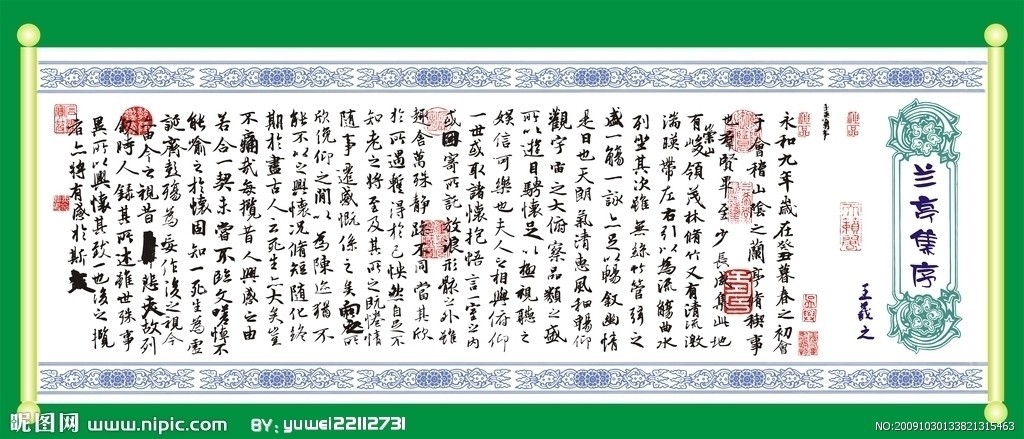 兰亭集序
王羲之
永和九年歲在癸丑暮春之初會
于會稽山陰之蘭亭脩稧事
也羣賢畢至少長咸集此地
有崇山峻領茂林脩竹又有清流激
湍暎帶左右引以為流觴曲水
列坐其次雖無絲竹管弦之
盛一觴一詠亦足以暢叙幽情
是日也天朗氣清惠風和暢仰
觀宇宙之大俯察品類之盛
所以遊目騁懷足以極視聽之
娛信可樂也夫人之相與俯仰
一世或取諸懷抱悟言一室之內
或因寄所託放浪形骸之外雖
趣舍萬殊静躁不同當其欣
於所遇暫得於己怏然自足不
知老之將至及其所之既惓情
隨事遷感慨係之矣向之所
欣俛仰之閒以為陳迹猶不
能不以之興懷況脩短隨化終
期於盡古人云死生亦大矣豈
不痛哉每攬昔人興感之由
若合一契未嘗不臨文嗟悼不
能喻之於懷固知一死生為虛
誕齊彭殤為妄作後之視今
亦由今之視昔悲夫故列
敘時人錄其所述雖世殊事
異所以興懷其致一也後之攬
者亦將有感於斯文
昵图网 www.nipic.com
BY: yuwei22112731
NO:20091030133821315463